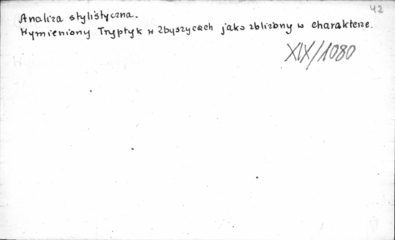 42
Analiza stylistyczna.
Wymieniony Tryptyk w Zbyszycach jako zbliżony w charakterze.
XIX/1080